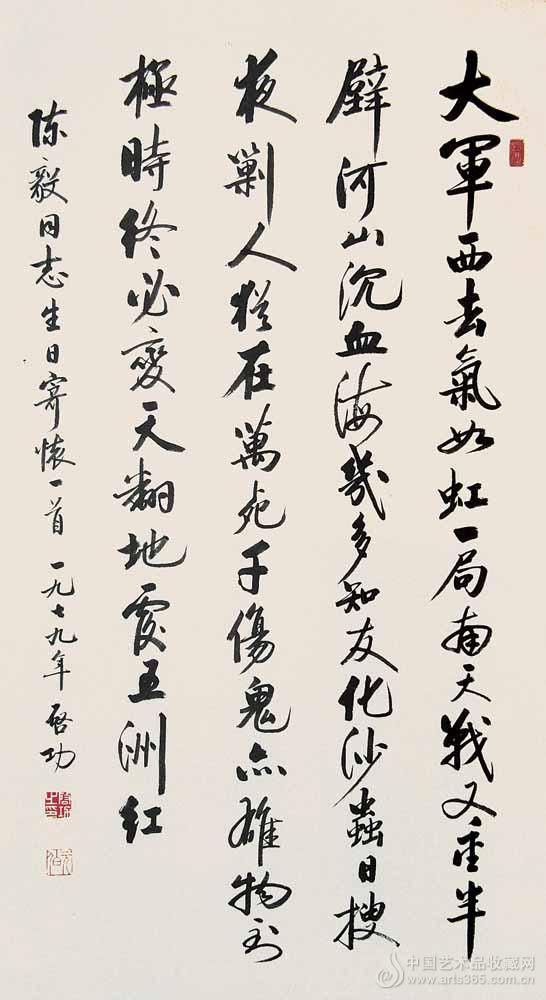 大軍西去氣如虹一局南天戰又重半
壁河山沉血海幾多知友化沙蟲日搜
夜剿人猶在萬死千傷鬼亦雄物到
極時終必變天翻地覆五洲红
陈毅同志生日寄懷一首 一九七九年 啓功
中国艺术品收藏网
www.arts365.com.cn